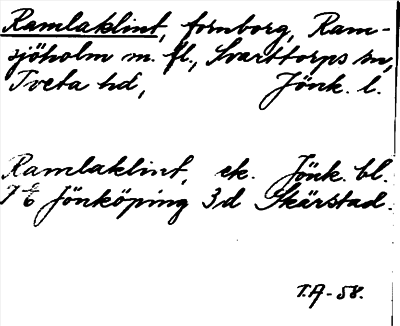 Ramlaklint, fornborg, Ram-
sjöholm m. fl., Svarttorps sn,
Tveta hd, Jönk. l.
Ramlaklint, ek. Jönk. bl.
7 E Jönköping 3d Skärstad.
T.A-58.